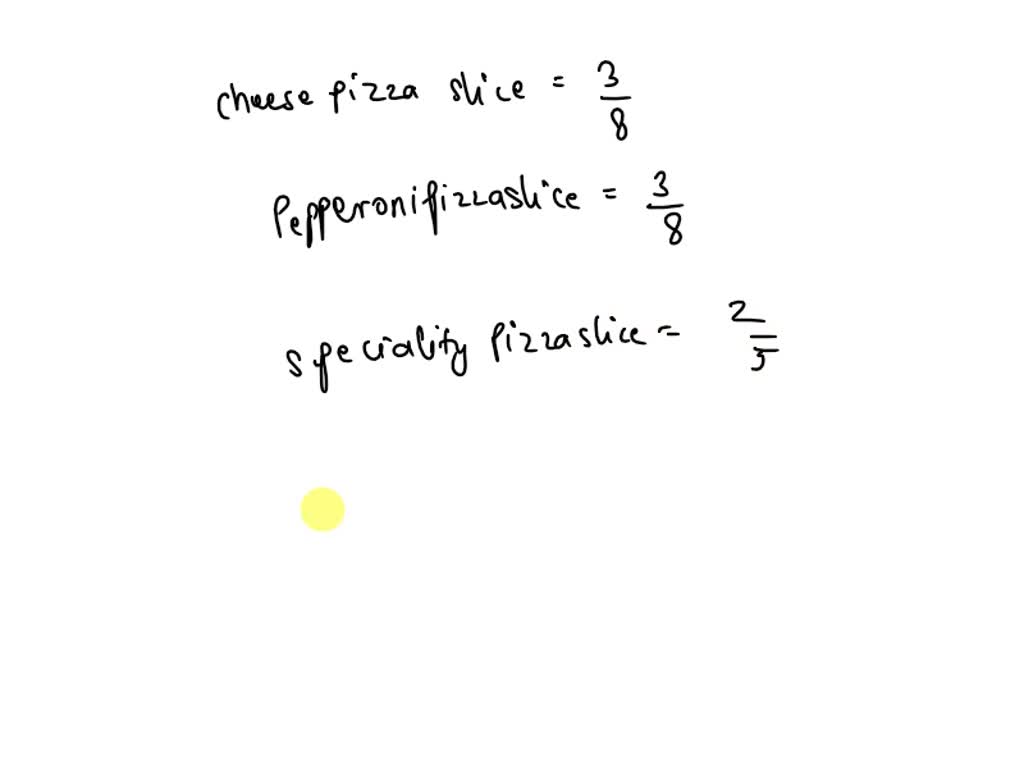 cheese pizza slice = 3/8
Pepperoni pizza slice = 3/8
speciality pizza slice = 2/5